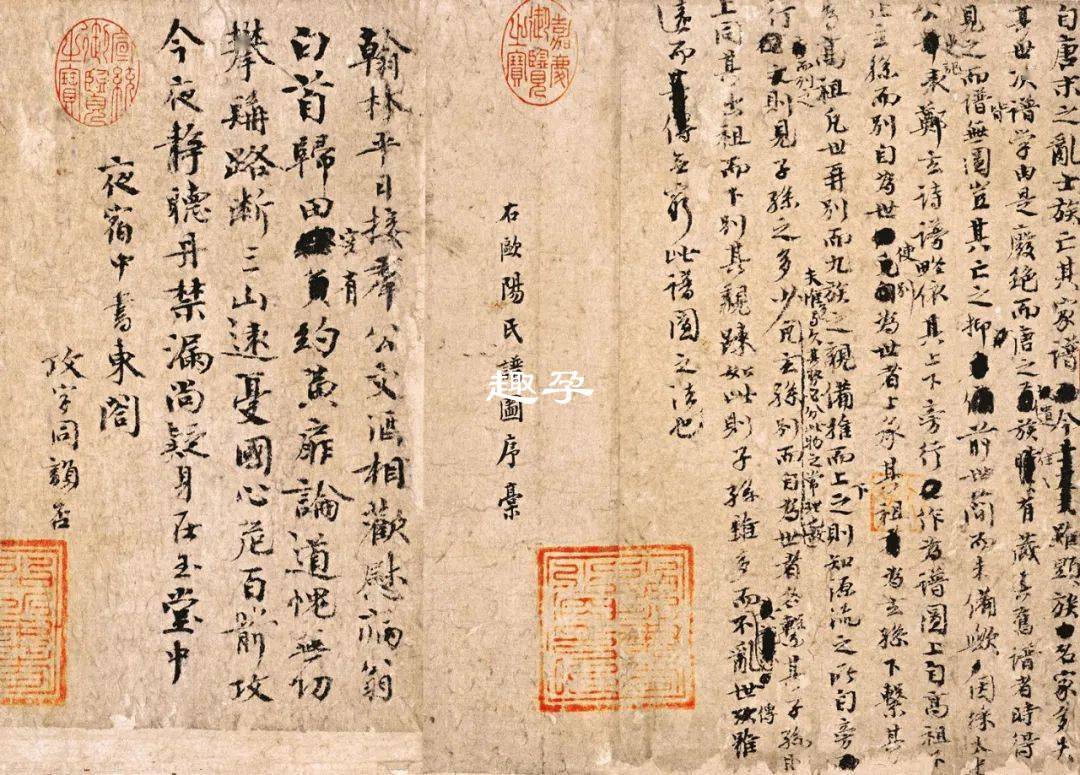 自唐末之亂士族亡其家譜今雖顯族名家多失
其世次譜学由是廢絶而唐之遺族往往有藏其舊譜者時得
見之而譜皆無圖豈其亡之抑前世簡而未備歟因採太史
公史記表鄭玄詩譜略依其上下旁行作為譜圖上自高祖下
止玄孫而别自為世使别為世者上承其祖為玄孫下繫其
孫為高祖凡世再别而九族之親備推而上之則知源流之所自旁
夫惟多與久其勢必分此物之常理也
行而列之下則見子孫之多少凡玄孫别而自為世者各繫其子孫則
上同其出祖而下别其親疎如此則子孫雖多而不亂世傳雖
遠而無窮此譜圖之法也
嘉慶御覽之寶
右歐陽氏譜圖序稾
趣孕
翰林平日接羣公文酒相歡慰病翁
白首歸田空有約黃扉論道愧無功
攀髯路斷三山遠憂國心危百箭攻
今夜靜聽丹禁漏尚疑身在玉堂中
夜宿中書東閤
攻字同韻否
宣統御覽之寶